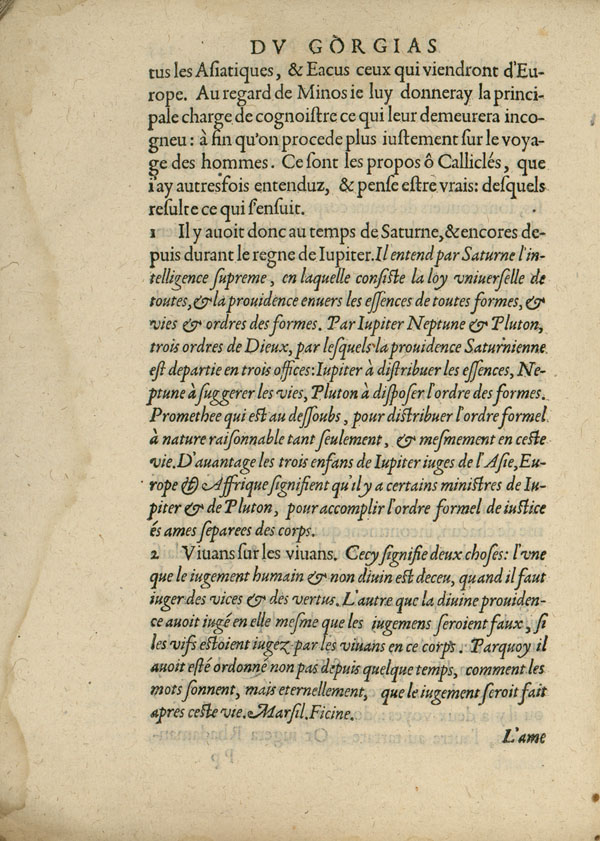 DV GORGIAS
tus les Aſiatiques, & Eacus ceux qui viendront d'Eu-
rope. Au regard de Minos ie luy donneray la princi-
pale charge de cognoiſtre ce qui leur demeurera inco-
gneu : à fin qu'on procede plus iuſtement ſur le voya-
ge des hommes. Ce ſont les propos ô Calliclés, que
i'ay autresfois entenduz, & penſe eſtre vrais: deſquels
reſulte ce qui ſ'enſuit.
1 Il y auoit donc au temps de Saturne, & encores de-
puis durant le regne de Iupiter. Il entend par Saturne l'in-
telligence ſupreme, en laquelle conſiſte la loy vniuerſelle de
toutes, & la prouidence enuers les eſſences de toutes formes, &
vies & ordres des formes. Par Iupiter Neptune & Pluton,
trois ordres de Dieux, par leſquels la prouidence Saturnienne
eſt departie en trois offices: Iupiter à diſtribuer les eſſences, Ne-
ptune à ſuggerer les vies, Pluton à diſpoſer l'ordre des formes.
Promethee qui eſt au deſſoubs, pour diſtribuer l'ordre formel
à nature raiſonnable tant ſeulement, & meſmement en ceſte
vie. D'auantage les trois enfans de Iupiter iuges de l'Aſie, Eu-
rope & Affrique ſignifient qu'il y a certains miniſtres de Iu-
piter & de Pluton, pour accomplir l'ordre formel de iuſtice
és ames ſeparees des corps.
2 Viuans ſur les viuans. Cecy ſignifie deux choſes: l'vne
que le iugement humain & non diuin eſt deceu, quand il faut
iuger des vices & des vertus. L'autre que la diuine prouiden-
ce auoit iugé en elle meſme que les iugemens ſeroient faux, ſi
les vifs eſtoient iugez par les viuans en ce corps. Parquoy il
auoit eſté ordonné non pas depuis quelque temps, comment les
mots ſonnent, mais eternellement, que le iugement ſeroit fait
apres ceſte vie. Marſil. Ficine.
L'ame